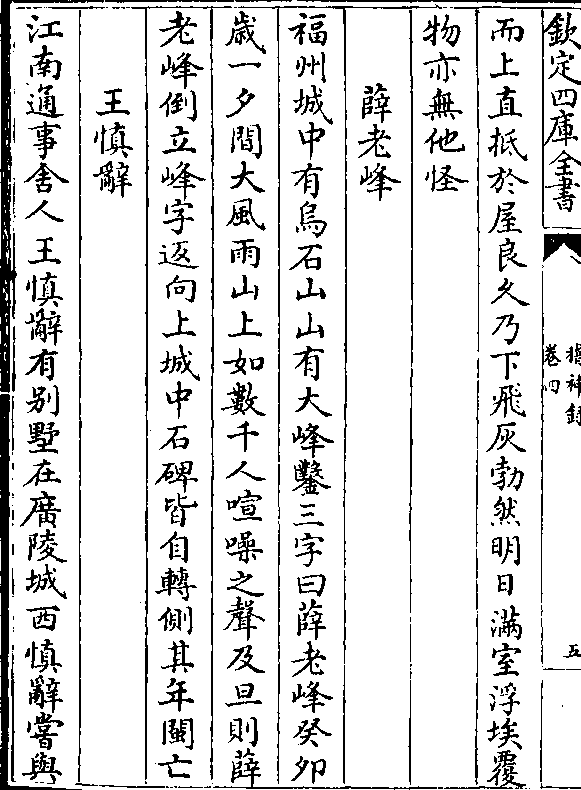 欽定四庫全書
卷四
神錄
五
而上直抵於屋良久乃下飛灰勃然明日滿室浮埃覆
物亦無他怪
薛老峰
福州城中有烏石山山有大峰鑿三字曰薛老峰癸卯
歲一夕間大風雨山上如數千人喧噪之聲及旦則薛
老峰倒立峰字返向上城中石碑皆自轉側其年閩亡
王慎辭
江南通事舍人王慎辭有別墅在廣陵城西慎辭嘗與